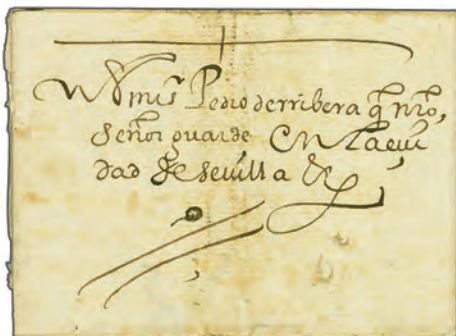 Pedro derribera q̃ nrõ,
señor guarde En Laciu
dad de seuilla